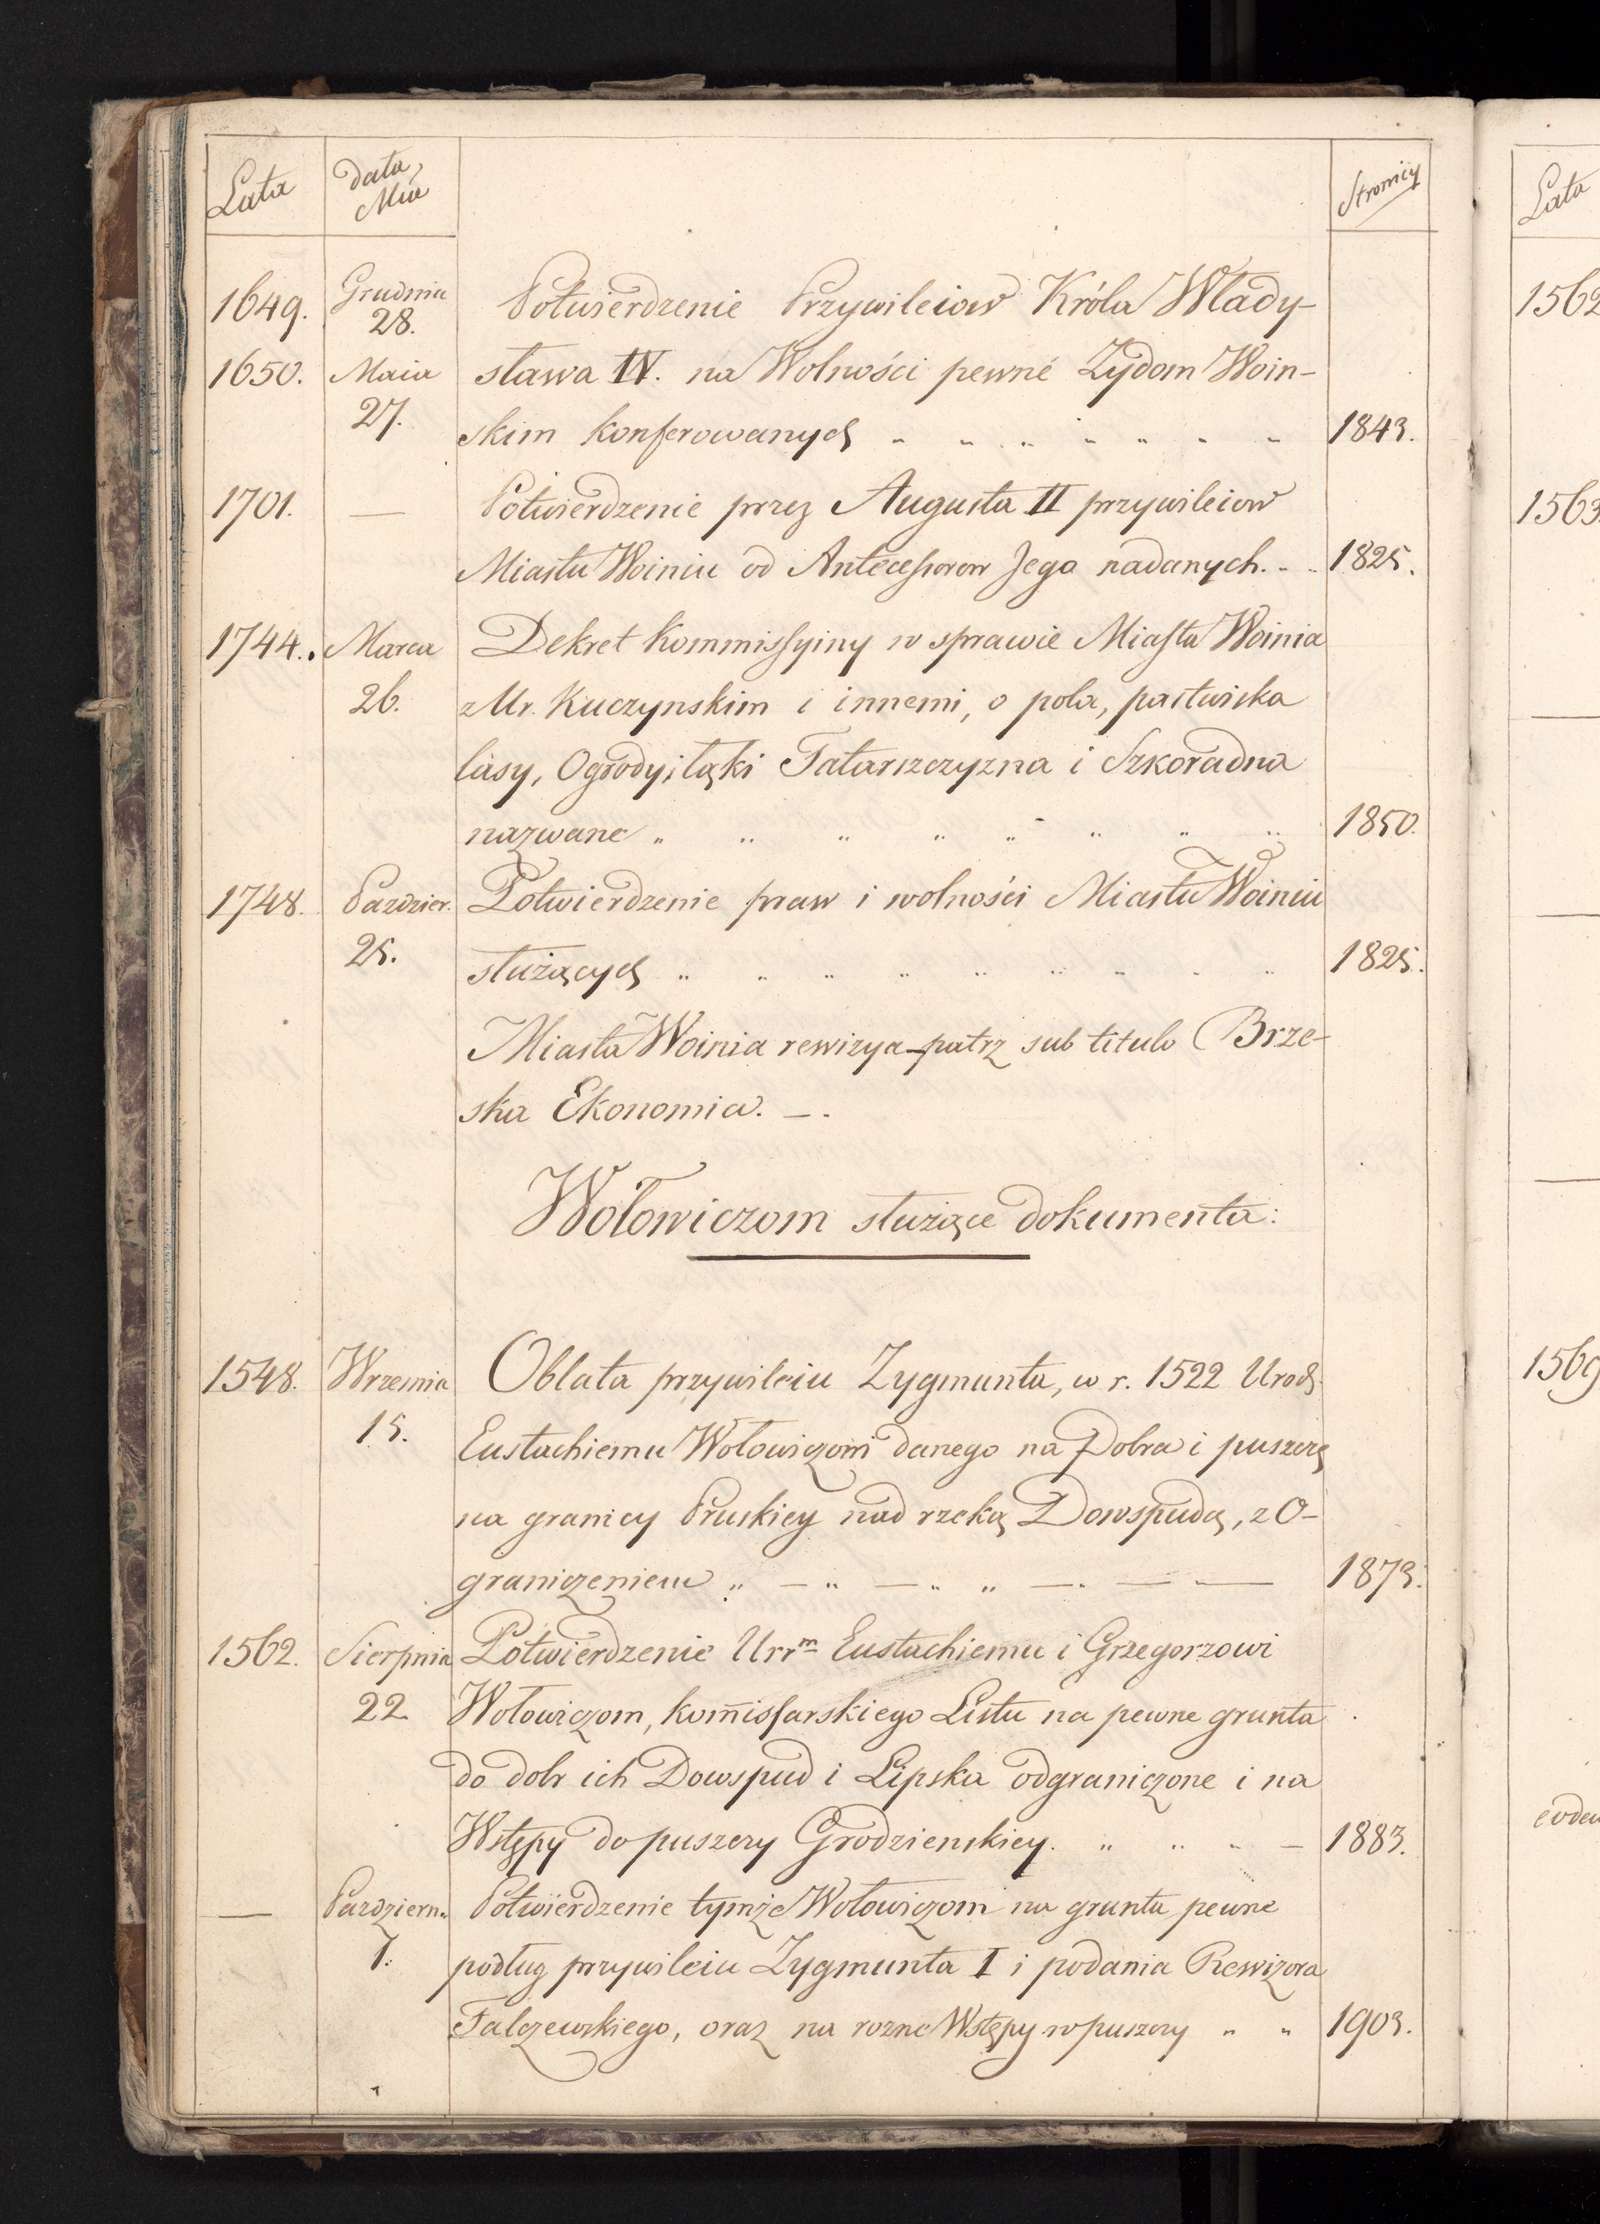 Lata
Data,
Mca
Stronicy
1649. Grudnia 28. Potwierdzenie Przywileiow Króla Włady-
1650. Maia 27. sława IV. na Wolności pewné Zydom Woin-
skim konferowanych „ „ „ „ „ „ „ 1843.
1701. — Potwierdzenie przez Augusta II przywileiow
Miastu Woiniu od Antecessorow Jego nadanych. - - 1825.
1744. Marca 26. Dekret Kommissyiny w sprawie Miasta Woinia
z Ur. Kuczynskim i innemi, o pola, pastwiska
lasy, Ogrody, i łąki Tatarszczyzna i Szkoradna
nazwane „ „ „ „ „ „ „ „ 1850.
1748. Pazdzier. 25. Potwierdzenie praw i wolności Miastu Woiniu
służących „ „ „ „ „ „ „ „ „ 1825.
Miasta Woinia rewizya - patrz sub titulo Brze-
ska Ekonomia. — .
Wołowiczom służące dokumenta:
1548. Wrzesnia 15. Oblata przywileiu Zygmunta, w r. 1522 Urodz.
Eustachiemu Wołowiczowi danego na Dobra i puszczę
na granicy Pruskiey nad rzeką Dowspudą, z O-
graniczeniem „ — „ — „ „ — . — — 1873.
1562. Sierpnia 22 Potwierdzenie Urrm Eustachiemu i Grzegorzowi
Wołowiczom, kom̄issarskiego Listu na pewne grunta
do dobr ich Dowspud i Lipska odgraniczone i na
Wstępy do puszczy Grodzienskiey. „ „ „ — 1883.
— Pazdziern. 7. Potwierdzenie tymże Wołowiczom na grunta pewne
podług przywileiu Zygmunta I i podania Rewizora
Falczewskiego, oraz na rozne Wstępy w puszczy „ „ 1903.
Lata
1562
1563.
1569
eodem